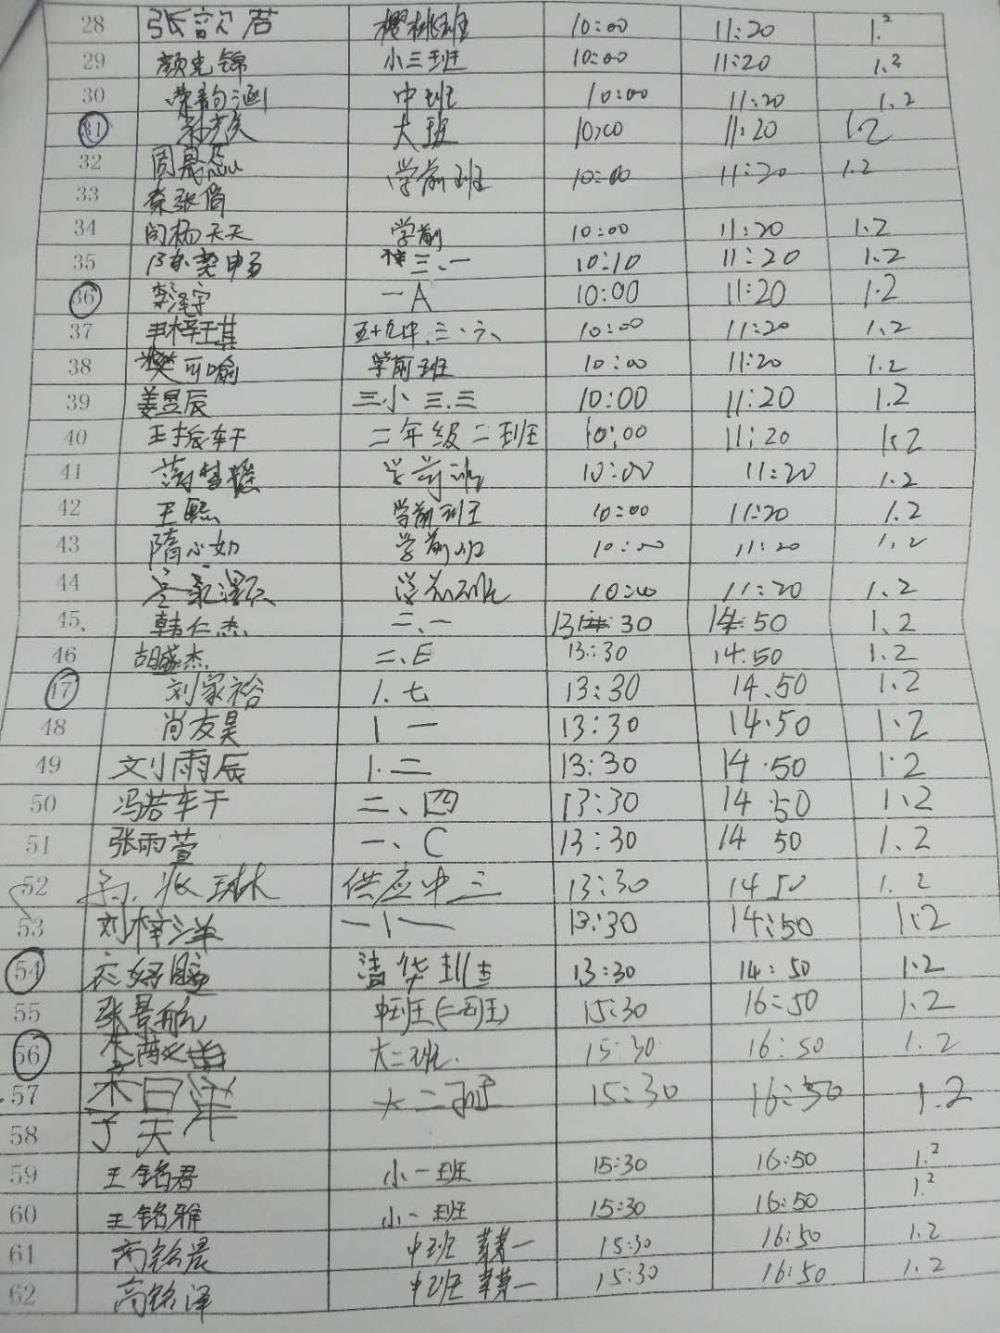 28 张歆若 樱桃班 10:00 11:20 1.2
29 颜克锦 小三班 10:00 11:20 1.2
30 荣韵涵 中班 10:00 11:20 1.2
31 大班 10:00 11:20 1.2
32 周 学前班 10:00 11:20 1.2
33 张
34 闫杨天天 学前 10:00 11:20 1.2
35 三、一 10:10 11:20 1.2
36 李泽宇 一A 10:00 11:20 1.2
37 王梓琪 五十九中.三、六 10:00 11:20 1.2
38 樊可喻 学前班 10:00 11:20 1.2
39 姜昱辰 三小 三.三 10:00 11:20 1.2
40 王振轩 二年级二班 10:00 11:20 1.2
41 学前班 10:00 11:20 1.2
42 王熙 学前班 10:00 11:20 1.2
43 隋心如 学前班 10:00 11:20 1.2
44 学前班 10:00 11:20 1.2
45、 韩仁杰 二、一 13:30 14:50 1.2
46 胡盛杰 二、E 13:30 14:50 1.2
47 刘家裕 1.七 13:30 14.50 1.2
48 肖友昊 1 一 13:30 14.50 1.2
49 刘雨辰 1.二 13:30 14.50 1.2
50 冯若轩 二、四 13:30 14:50 1.2
51 张雨萱 一、C 13:30 14 50 1.2
52 琳 供应中三 13:30 14 50 1.2
53 刘梓洋 一1一 13:30 14:50 1.2
54 清华班 13:30 14:50 1.2
55 张景航 中班(二班) 15:30 16:50 1.2
56 大二班. 15:30 16:50 1.2
57 日洋 大二班 15:30 16:50 1.2
58 于天
59 王铭君 小一班 15:30 16:50 1.2
60 王铭雅 小一班 15:30 16:50 1.2
61 高铭晨 中班 一 15:30 16:50 1.2
62 高铭泽 中班 一 15:30 16:50 1.2